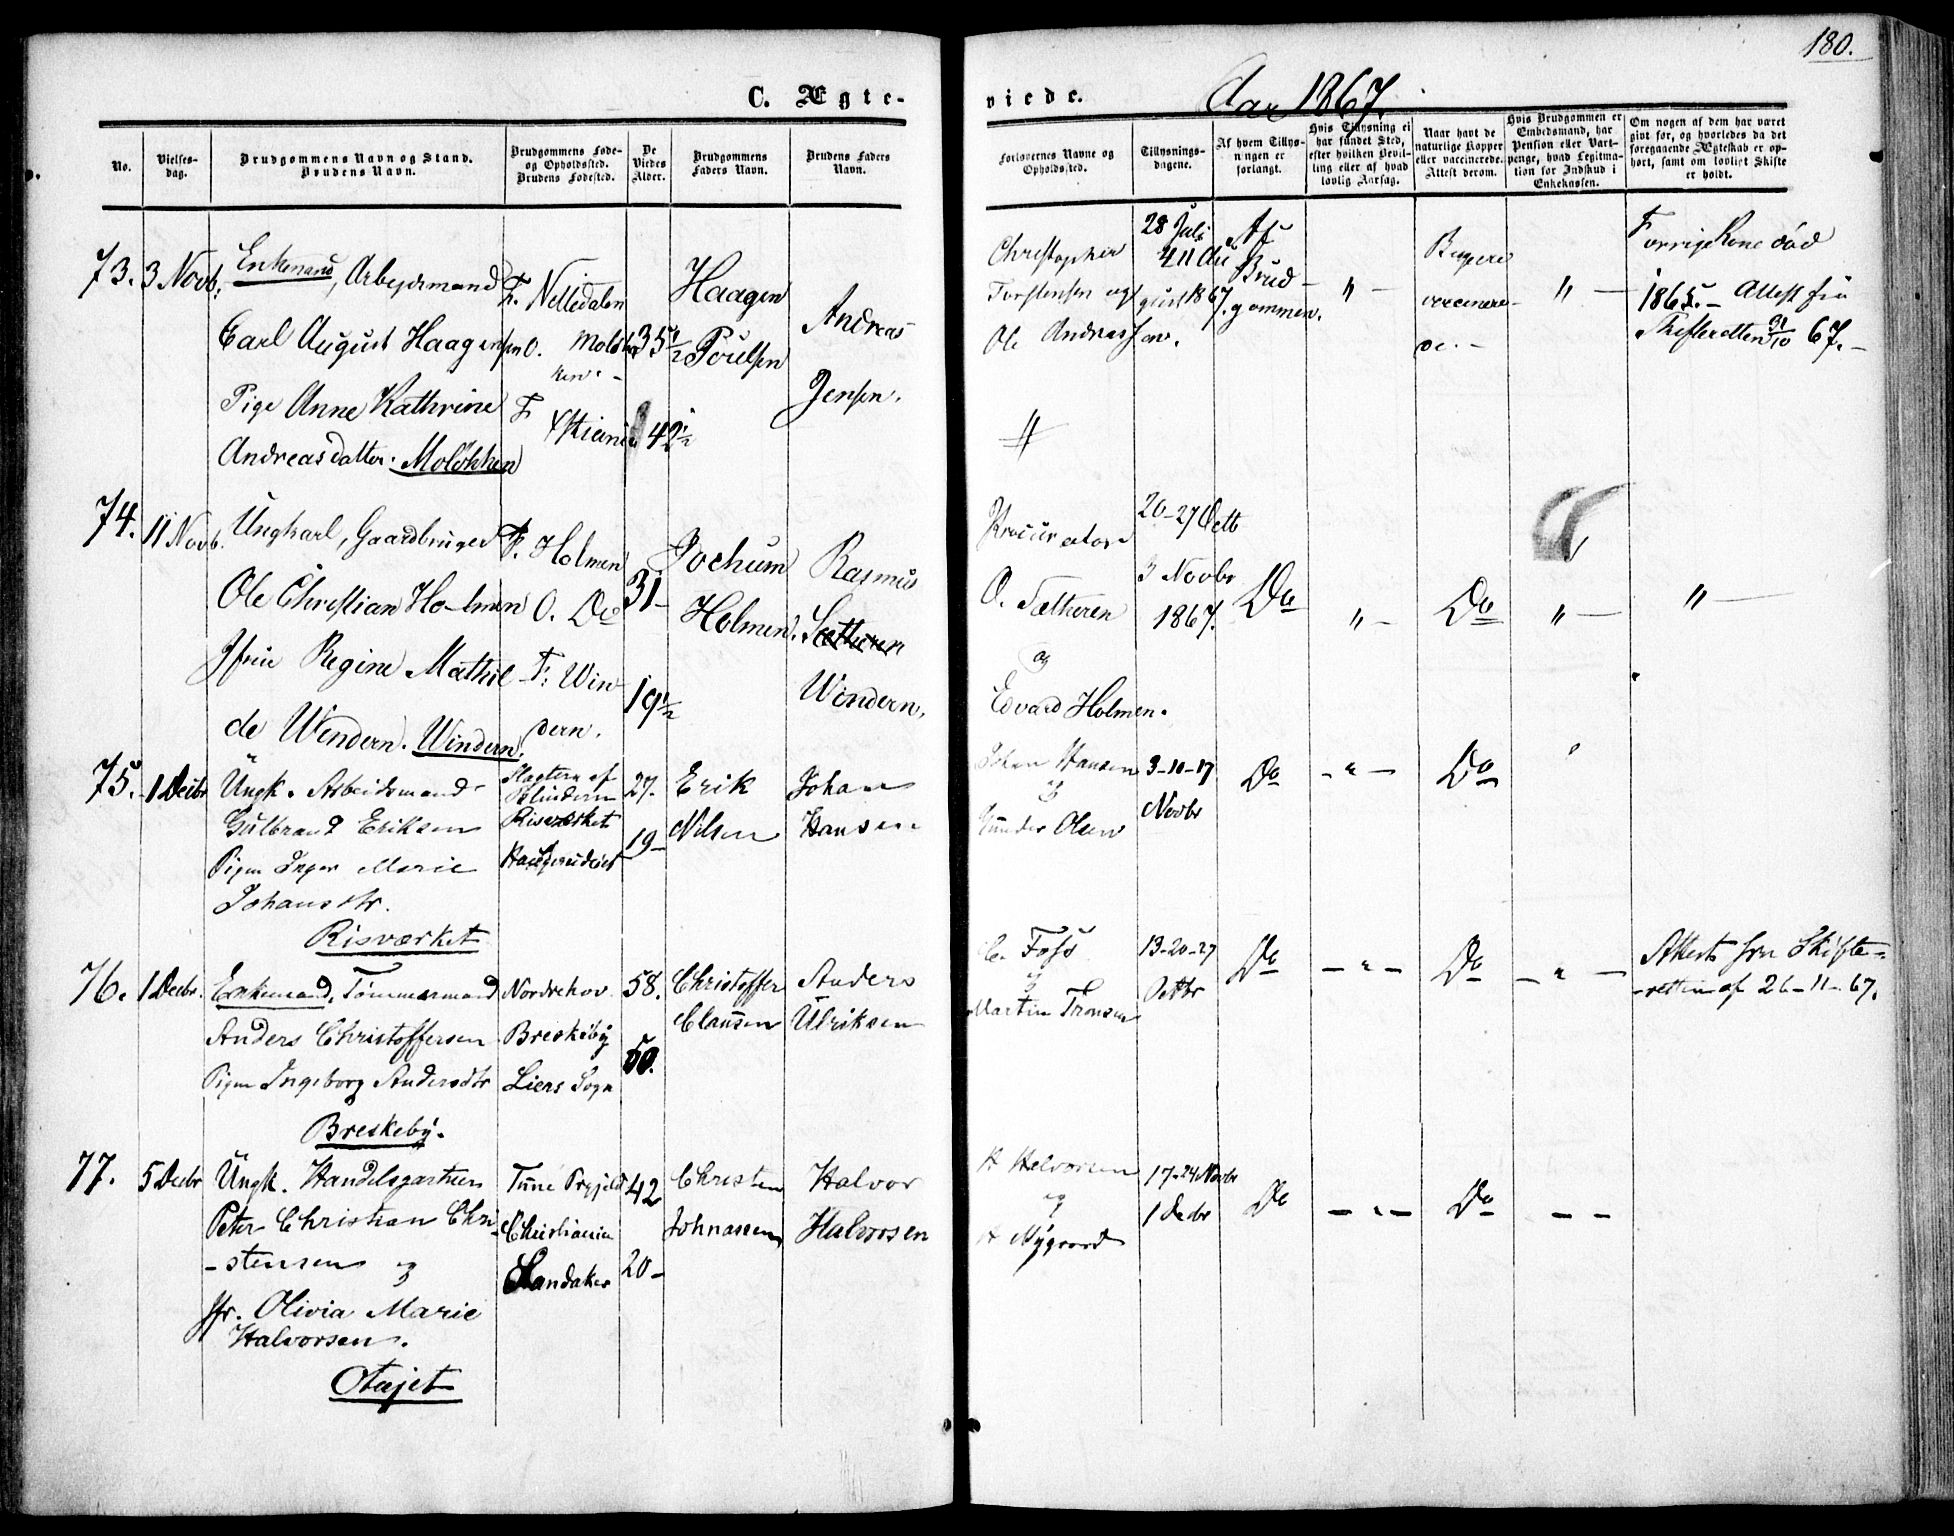 180.
C. Ægte-
viede.
Aar 1867.
No.
Vielses-
dag.
Brudgommens Navn og Stand.
Brudens Navn.
Brudgommens Føde-
og Opholdssted.
Brudens Fødested.
De
Viedes
Alder.
Brudgommens
Faders Navn.
Brudens Faders
Navn.
Forlovernes Navne og
Opholdssted.
Tillysnings-
dagene.
Af hvem Tillys-
ningen er
forlangt.
Hvis Tillysning ei
har fundet Sted,
efter hvilken Bevil-
ling eller af hvad
lovlig Aarsag.
Naar havt de
naturlige Kopper
eller vaccinerede.
Attest derom.
Hvis Brudgommen er
Embedsmand, har
Pension eller Vart-
penge, hvad Legitima-
tion for Indskud i
Enkekassen.
Om nogen af dem har været
givt før, og hvorledes da det
foregaaende Ægteskab er op-
hørt, samt om lovligt Skifte
er holdt.
73. 3 Novb.
Enkemand, Arbejdsmand
Carl August Haagensen
Pige Anne Kathrine
Andreasdatter. Moløkken
F. Nelledalen
O. Moløk
ken
F
Xstiania
35½
42½
Haagen
Poulsen
Andreas
Jensen.
Christopher
Torstensen og
Ole Andreassen.
28 Juli
4 11 Au
gust 1867.
Af
Brud-
gommen.
" -
Begge
vaccinere-
de. -
" -
Forrige Kone død
1865. - Attest fra
Skifteretten 31/10 67. -
74. 11 Novb.
Ungkarl, Gaardbruger
Ole Christian Holmen
Jfru Regine Mathil
de Windern. Windern.
F. Holmen
O. Do
F: Win
dern.
31-
19½
Jochum
Holmen.
Rasmus
Sætheren
Windern.
Procurator
O. Sætheren
og
Edvard Holmen.
20-27 Octb
3 Novbr
1867.
Do
" -
Do
" -
" -
75. 1 Decbr
Ungk. Arbeidsmand
Gulbrand Eriksen
Pigen Inger Marie
Johansdtr.
Risværket
Blindern
Risværket
27.
19-
Erik
Nilsen
Johan
Hansen
Johan Hansen
og
Gunder Olsen
3-10-17
Novbr
Do
- " -
Do
76. 1 Decbr.
Enkemand, Tømmermand
Anders Christoffersen
Pigen Ingeborg Andersdtr
Breskeby.
Norderhov
Breskeby
Liers Sogn
58.
50.
Christoffer
Clausen
Anders
Ulriksen
Foss
og
Martin Tronsen
13-20-27
Octbr
Do
- " -
Do
- " -
Attest fra Skifte-
retten af 26-11-67.
77. 5 Decbr
Ungk. Handelsgartner
Peter Christian Chri-
-stensen og
Jfr. Olivia Marie
Halvorsen.
Otajet
Tune Prgjeld
Christiania
Sandaker
42
20-
Christen
Johnassen
Halvor
Halvorsen
H Halvorsen
og
H Nygaard
17-24 Novbr
1 Decbr
Do
- " -
Do
- -